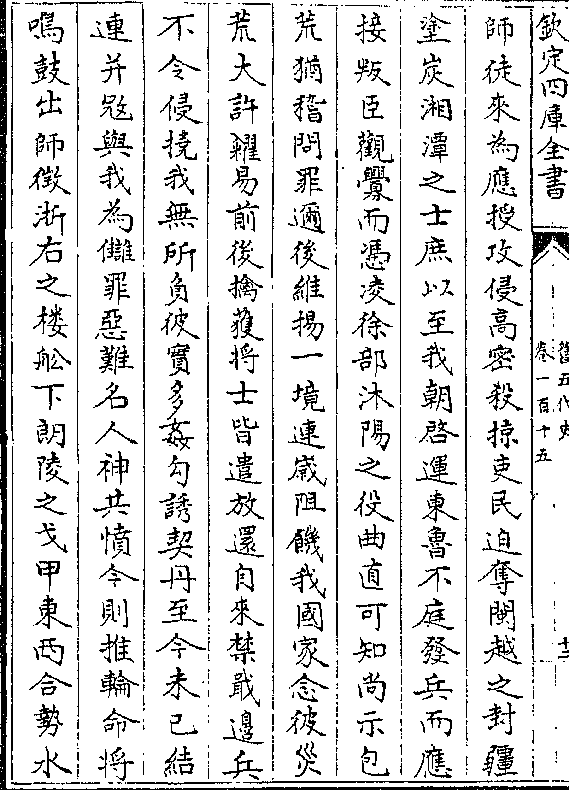 欽定四庫全書
舊五代史
卷一百十五
十三
師徒來為應授攻侵髙密殺掠吏民迫奪閩越之封疆
塗炭湘潭之士庶以至我朝啓運東魯不庭發兵而應
接叛臣觀釁而憑凌徐部沐陽之役曲直可知尚示包
荒猶稽問罪邇後維揚一境連歲阻饑我國家念彼災
荒大許糴易前後擒獲將士皆遣放還自來禁戢邊兵
不令侵撓我無所負彼實多姦勾誘契丹至今未已結
連并宼與我為讎罪惡難名人神共憤今則推輪命將
鳴鼓出師徵浙右之樓舩下朗陵之戈甲東西合勢水